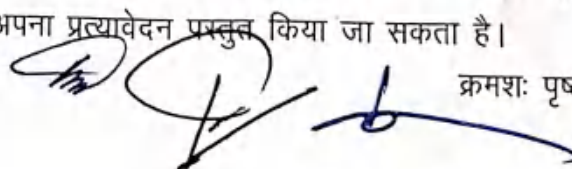 अपना प्रत्यावेदन प्रस्तुत किया जा सकता है।
क्रमशः पृष